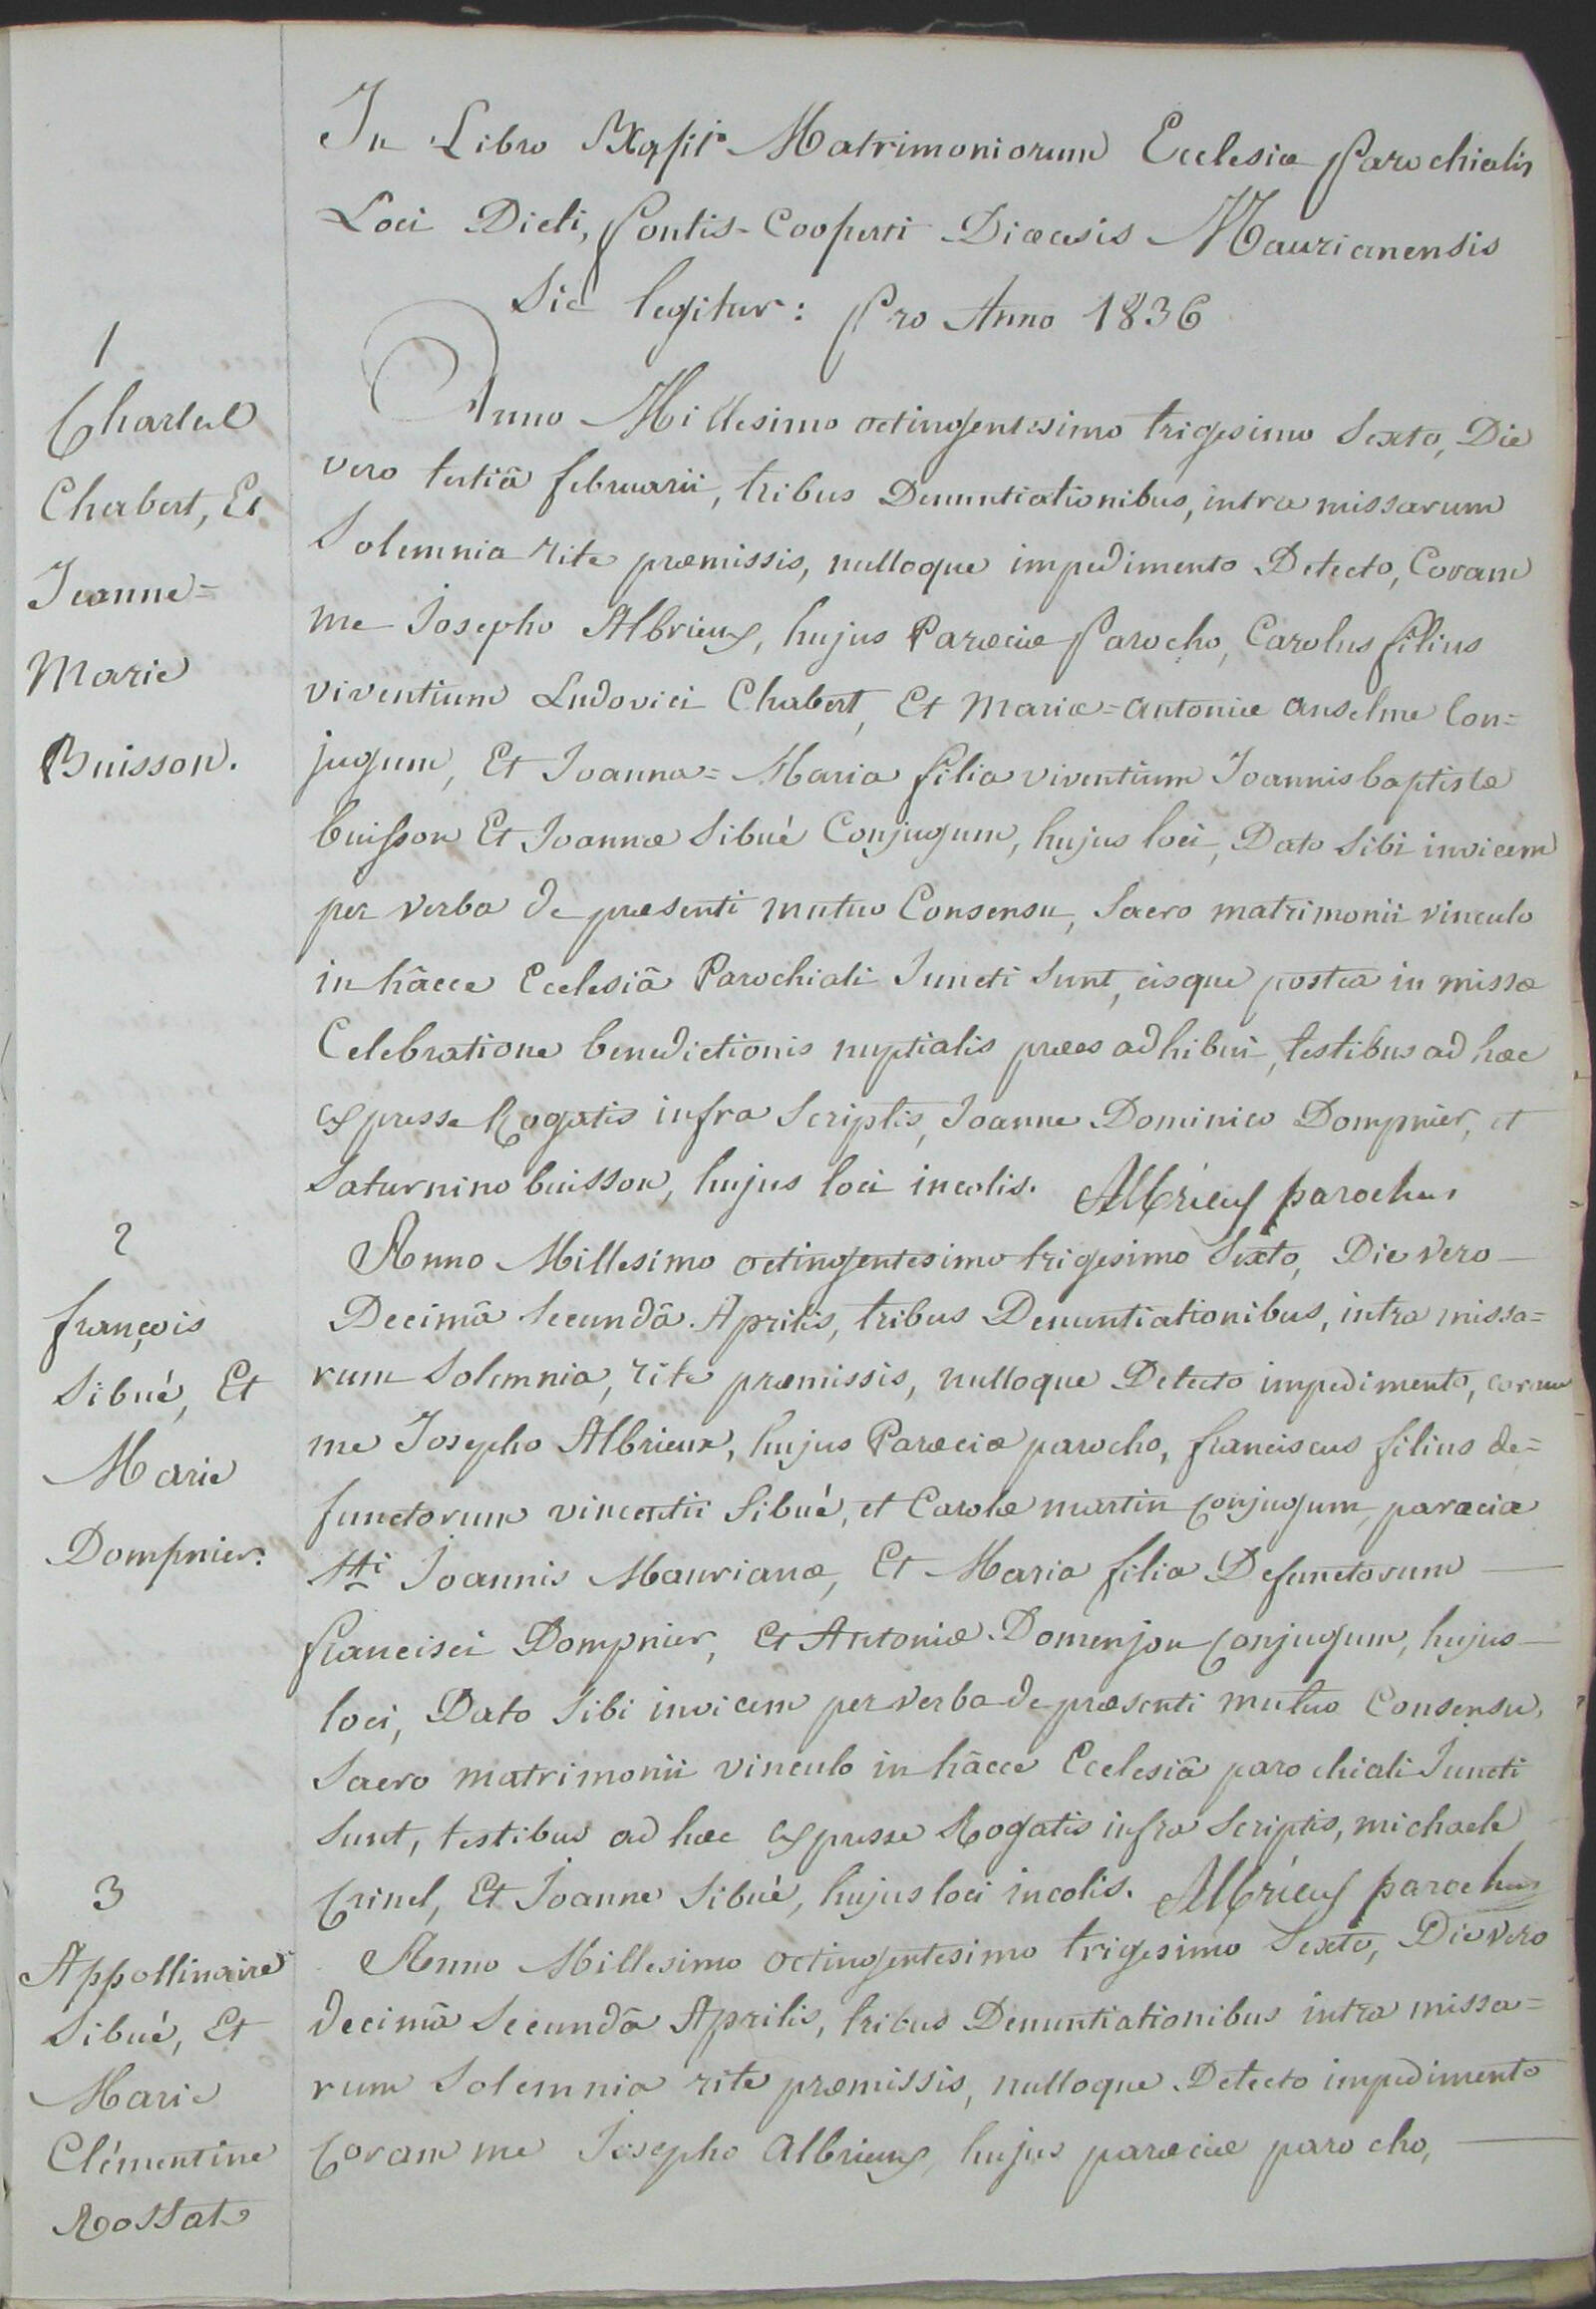 In Libro Matrimoniorum Ecclesiæ Parochialis
Loci Dicti, Pontis-Cooperti Diœcesis Maurianensis
Sic legitur: Pro Anno 1836
1
Charles
Chabert, Et
Jeanne=
Marie
Buisson.
Anno Millesimo octingentesimo trigesimo Sexto, Die
vero tertiâ februarii, tribus Denuntiationibus, intra missarum
Solemnia rite præmissis, nulloque impedimento Detecto, Coram
me Josepho Albrieux, hujus Parœciæ Parocho, Carolus filius
viventium Ludovici Chabert, Et Mariæ=antoniæ anselme Con=
jugum, Et Joanna=Maria filia viventium Joannis baptistæ
buisson Et Joannæ Sibué Conjugum, hujus loci, Dato Sibi invicem
per verba de præsenti mutuo Consensu, Sacro matrimonii vinculo
in hâcce Ecclesiâ Parochiali Juncti Sunt, eisque postea in missæ
Celebratione benedictionis nuptialis preces adhibui, testibus ad hæc
expresse Rogatis infra Scriptis, Joanne Dominico Dompnier, et
Saturnino buisson, hujus loci incolis. Albrieux parochus
2
françois
Sibué, Et
Marie
Dompnier.
Anno Millesimo octingentesimo trigesimo Sexto, Die vero
Decimâ Secundâ Aprilis, tribus Denuntiationibus, intra missa=
rum Solemnia, rite præmissis, nulloque Detecto impedimento, coram
me Josepho Albrieux, hujus Parœciæ parocho, franciscus filius de=
functorum vincentii Sibué, et Carolæ martin Conjugum, parœciæ
Sti Joannis Maurianæ, Et Maria filia Defunctorum
francisci Dompnier, Et Antoniæ Domenjon Conjugum, hujus
loci, Dato Sibi invicem per verba de præsenti mutuo Consensu,
Sacro matrimonii vinculo in hâcce Ecclesiâ parochiali Juncti
Sunt, testibus ad hæc expresse Rogatis infra Scriptis, michaele
Crinel, Et Joanne Sibué, hujus loci incolis. Albrieux parochus
3
Appollinaire
Sibué, Et
Marie
Clémentine
Rossat
Anno Millesimo octingentesimo trigesimo Sexto, Die vero
decimâ Secundâ Aprilis, tribus Denuntiationibus intra missa=
rum Solemnia rite præmissis, nulloque Detecto impedimento
Coram me Josepho Albrieux, hujus parœciæ parocho,